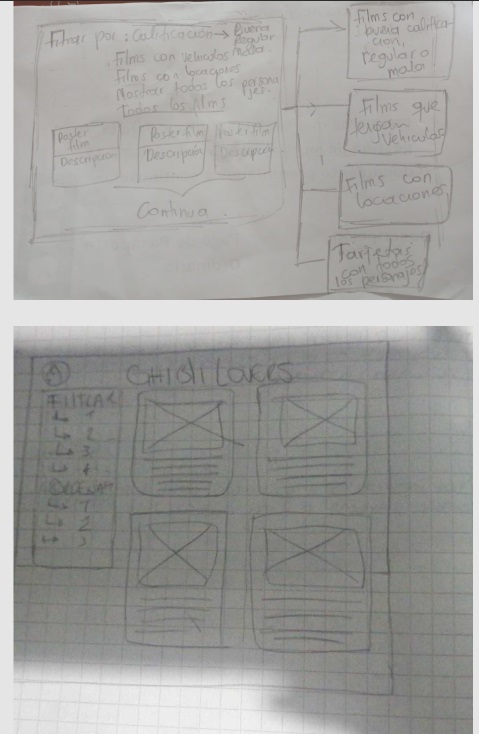 Filtrar por: Calificación → Buena
Regular
Mala
Films con vehículos
Films con locaciones
Mostrar todos los persona
jes.
Todos los films
Poster
film
Descripción
Poster film
Descripción
Poster film
Descripción
Continua
Films con
buena califica-
cion,
regular o
mala
Films que
tengan
vehículos
Films con
locaciones
Tarjetas
con todos
los personajes
CHIBLI LOVERS
FILTRAR
↳ 1
↳ 2
↳ 3
↳ 4
ORDENAR
↳ 1
↳ 2
↳ 3